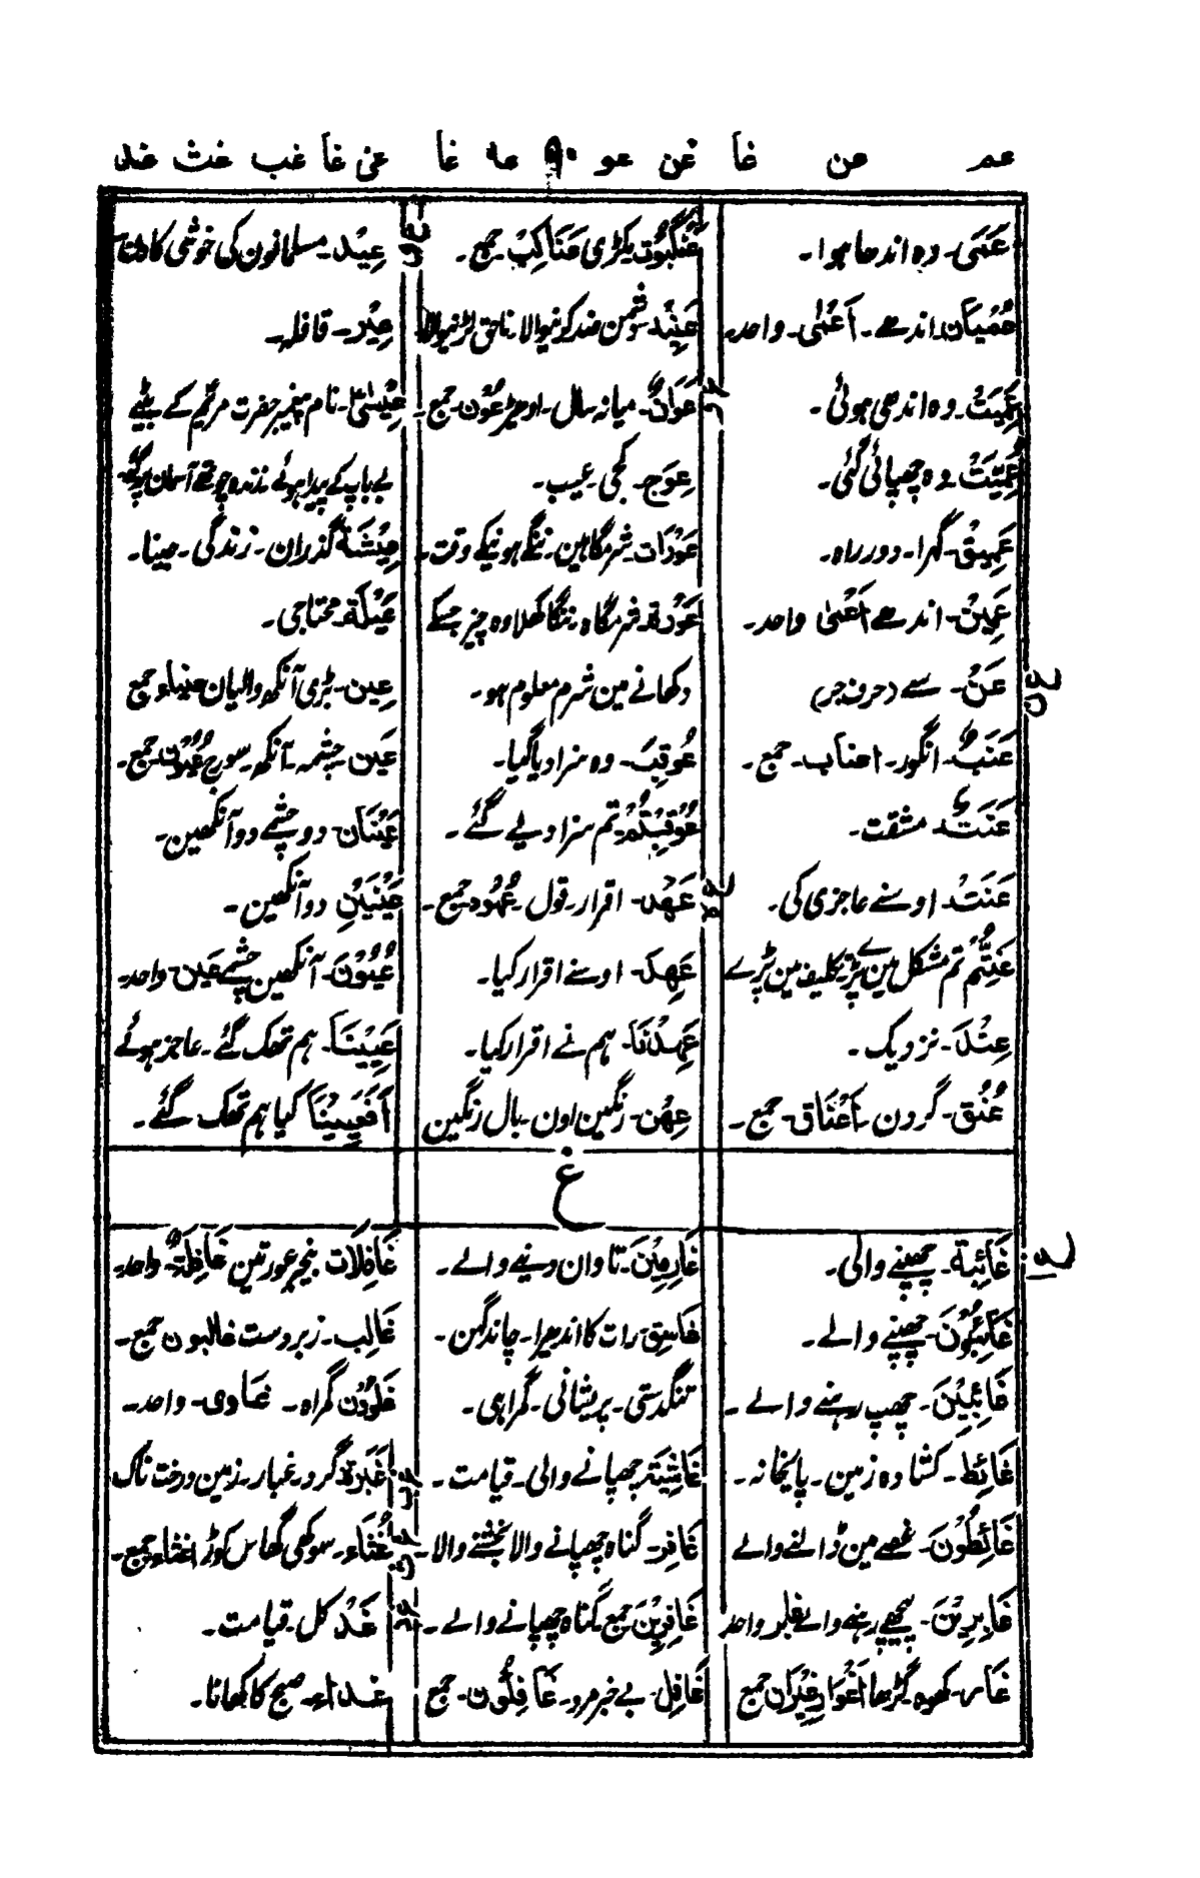 عم عن غا غن عو ۹۰ عه غا عی غا غب غث غد
عَمِیَ۔ وہ اندھا ہوا۔
عُمْیَان۔ اندھے۔ اَعْمٰی۔ واحد۔
عَمِیَتْ۔ وہ اندھی ہوئی۔
عُمِّیَتْ۔ وہ چھپائی گئی۔
عَمِیْقٌ۔ گہرا۔ دور راہ۔
عَمِیْنَ۔ اندھے اَعْمٰی واحد۔
عن
عَنْ۔ سے (حرف جر)
عِنَبٌ۔ انگور۔ اعناب۔ جمع۔
عَنَتٌ۔ مشقت۔
عَنَتْ۔ اوسنے عاجزی کی۔
عَنِتُّمْ تم مشکل مین پڑے تکلیف مین پڑے
عِنْدَ۔ نزدیک۔
عُنُق۔ گردن۔ اَعْنَاق۔ جمع۔
عَنْکَبُوْت مکڑی عَنَاکِبْ۔ جمع۔
عَنِیْد دشمن ضد کرنیوالا۔ ناحق لڑنیوالا
عو
عَوَانٌ۔ میانہ سال۔ ادھیڑ عُوْن۔ جمع۔
عِوَج۔ کجی۔ عیب۔
عَوْرَات۔ شرمگاہین۔ ننگے ہونیکے وقت۔
عَوْرَة۔ شرمگاہ۔ ننگا کھلا وہ چیز جسکے
دکھانے مین شرم معلوم ہو۔
عُوْقِبَ۔ وہ سزا دیا گیا۔
عُوْقِبْتُمْ۔ تم سزا دیے گئے۔
عه
عَهْد۔ اقرار۔ قول۔ عُهُوْد جمع۔
عَهِدَ۔ اوسنے اقرار کیا۔
عَهِدْنَا۔ ہم نے اقرار کیا۔
عِهْن۔ رنگین اون۔ بال رنگین
عی
عِیْد۔ مسلمانون کی خوشی کا دن
عِیْر۔ قافلہ۔
عِیْسٰی۔ نام پیغمبر حضرت مریم کے بیٹے
بے باپ کے پیدا ہوئے زندہ چوتھے آسمان پر گئے۔
عِیْشَة گذران۔ زندگی۔ جینا۔
عَیْلَة۔ محتاجی۔
عِین۔ بڑی آنکھ والیان عیناء جمع
عَین۔ چشمہ۔ آنکھ۔ سورج عُیُوْن۔ جمع۔
عَیْنَان۔ دو چشمے دو آنکھین۔
عَیْنَیْنِ دو آنکھین۔
عُیُوْنَ۔ آنکھین چشمے عَین۔ واحد۔
عَیِیْنَا۔ ہم تھک گئے۔ عاجز ہوئے
اَفَعَیِیْنَا کیا ہم تھک گئے۔
غ
غا
غَائِبَة۔ چھپنے والی۔
غَائِبُوْنَ۔ چھپنے والے۔
غَائِبِیْنَ۔ چھپ رہنے والے۔
غَائِط۔ کشادہ زمین۔ پایخانہ۔
غَائِظُوْنَ۔ غصے مین ڈالنے والے
غَابِرِیْنَ۔ پیچھے رہنے والے غابر واحد
غَار۔ کھوہ گڑھا اَغْوَار غِیْرَان جمع
غَارِمِیْنَ۔ تاوان دینے والے۔
غَاسِق رات کا اندھیرا۔ چاند گہن۔
تنگدستی۔ پریشانی۔ گمراہی۔
غَاشِیَة چھپانے والی۔ قیامت۔
غَافِر۔ گناہ چھپانے والا بخشنے والا۔
غَافِرِیْنَ جمع گناہ چھپانے والے۔
غَافِل۔ بے خبر مرد۔ غَافِلُوْن۔ جمع
غَافِلَات بیخبر عورتین غَافِلَةٌ واحد
غَالِب۔ زبردست غالبون جمع۔
غَاوُوْن گمراہ۔ غاوی۔ واحد۔
غب
غَبَرَة گرد۔ غبار۔ زمین درخت ناک
غث
غُثَاء۔ سوکھی گھاس کوڑا اغثاء جمع۔
غد
غَدْ کل۔ قیامت۔
غداء۔ صبح کا کھانا۔